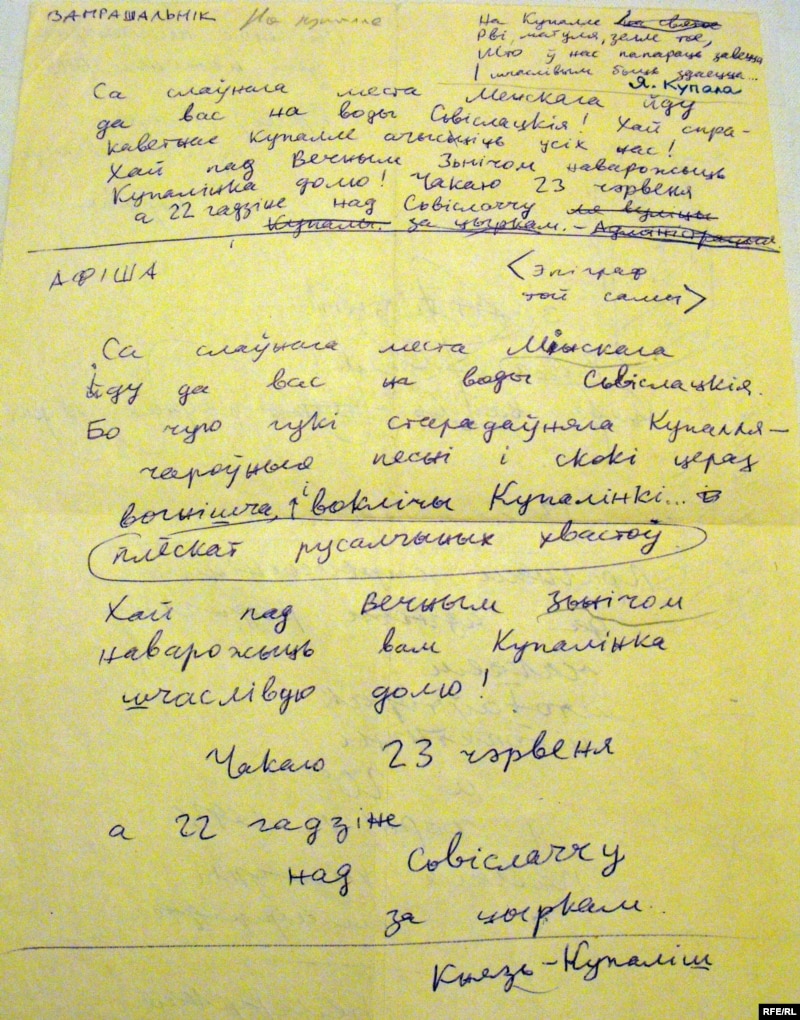 ЗАПРАШАЛЬНІК
На Купалле на свяце
Рві, матуля, зелле тое,
Што ў нас папараць завецца
І шчаслівым быць здаецца...
Я. Купала
Са слаўнага места Менскага йду
да вас на воды Сьвіслацкія! Хай спра-
каветнае Купалле ачысьціць усіх нас!
Хай пад Вечным Зьнічом наварожыць
Купалінка долю! Чакаю 23 чэрвеня
а 22 гадзіне над Сьвіслаччу ля вуліцы
Купалы. за цыркам. – Адміністрацыя
АФІША
<Эпіграф
той самы>
Са слаўнага места Мінскага
йду да вас на воды Сьвіслацкія.
Бо чую гукі старадаўняга Купалля –
чароўныя песні і скокі цераз
вогнішча, і воклічы Купалінкі... і
плёскат русалчыных хвастоў
Хай пад Вечным Зьнічом
наварожыць вам Купалінка
шчаслівую долю!
Чакаю 23 чэрвеня
а 22 гадзіне
над Сьвіслаччу
за цыркам..
Князь-Купаліш
RFE/RL